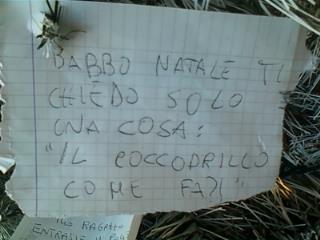 BABBO NATALE TI
CHIEDO SOLO
UNA COSA:
"IL COCCODRILLO
COME FA?!"
RAGAZZO
ENTRASSE